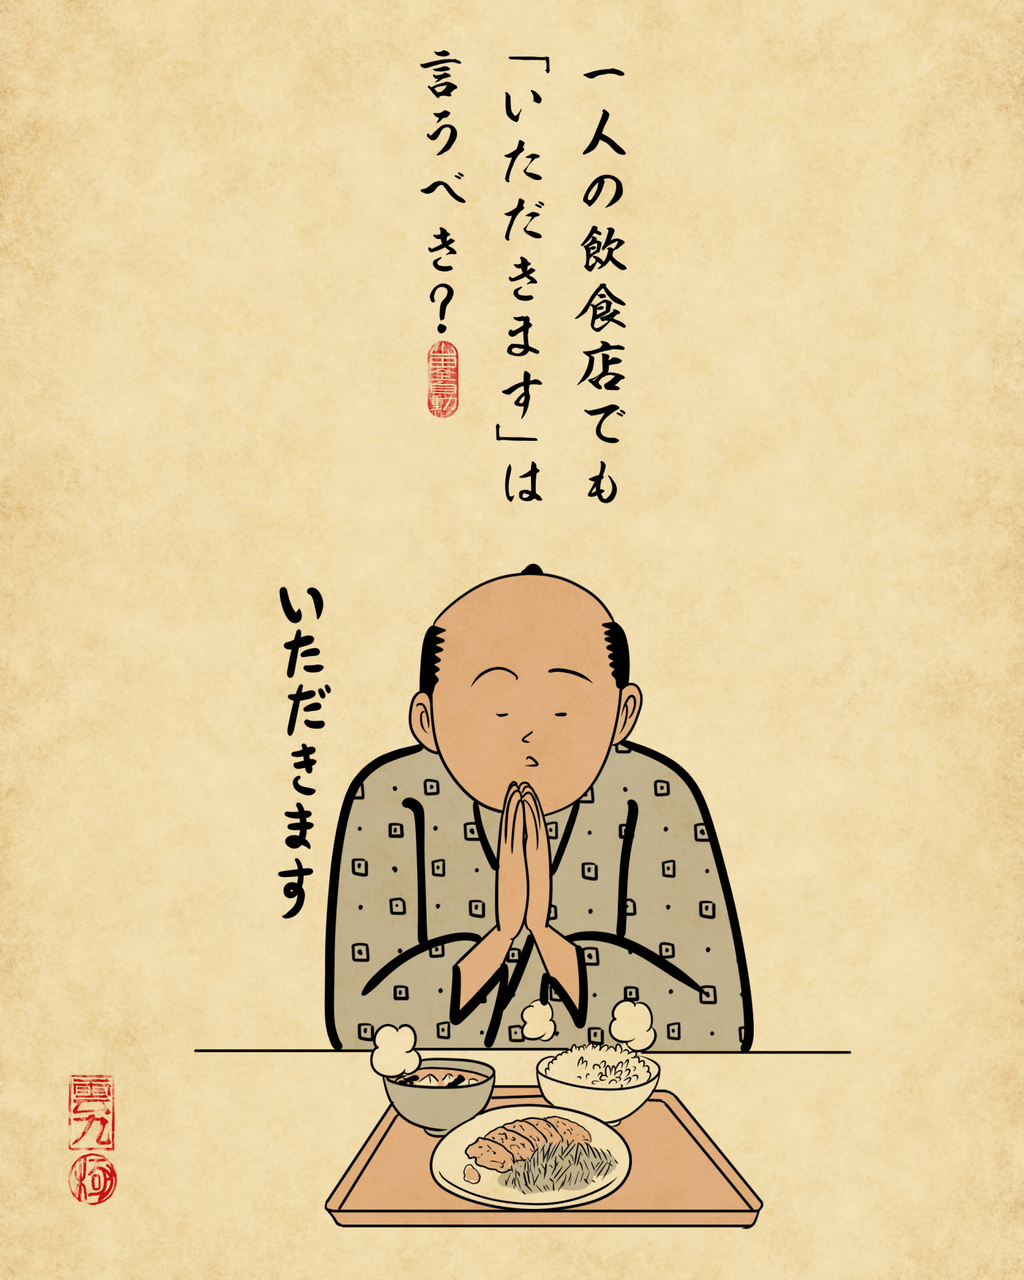 一人の飲食店でも
「いただきます」は
言うべき?
いただきます